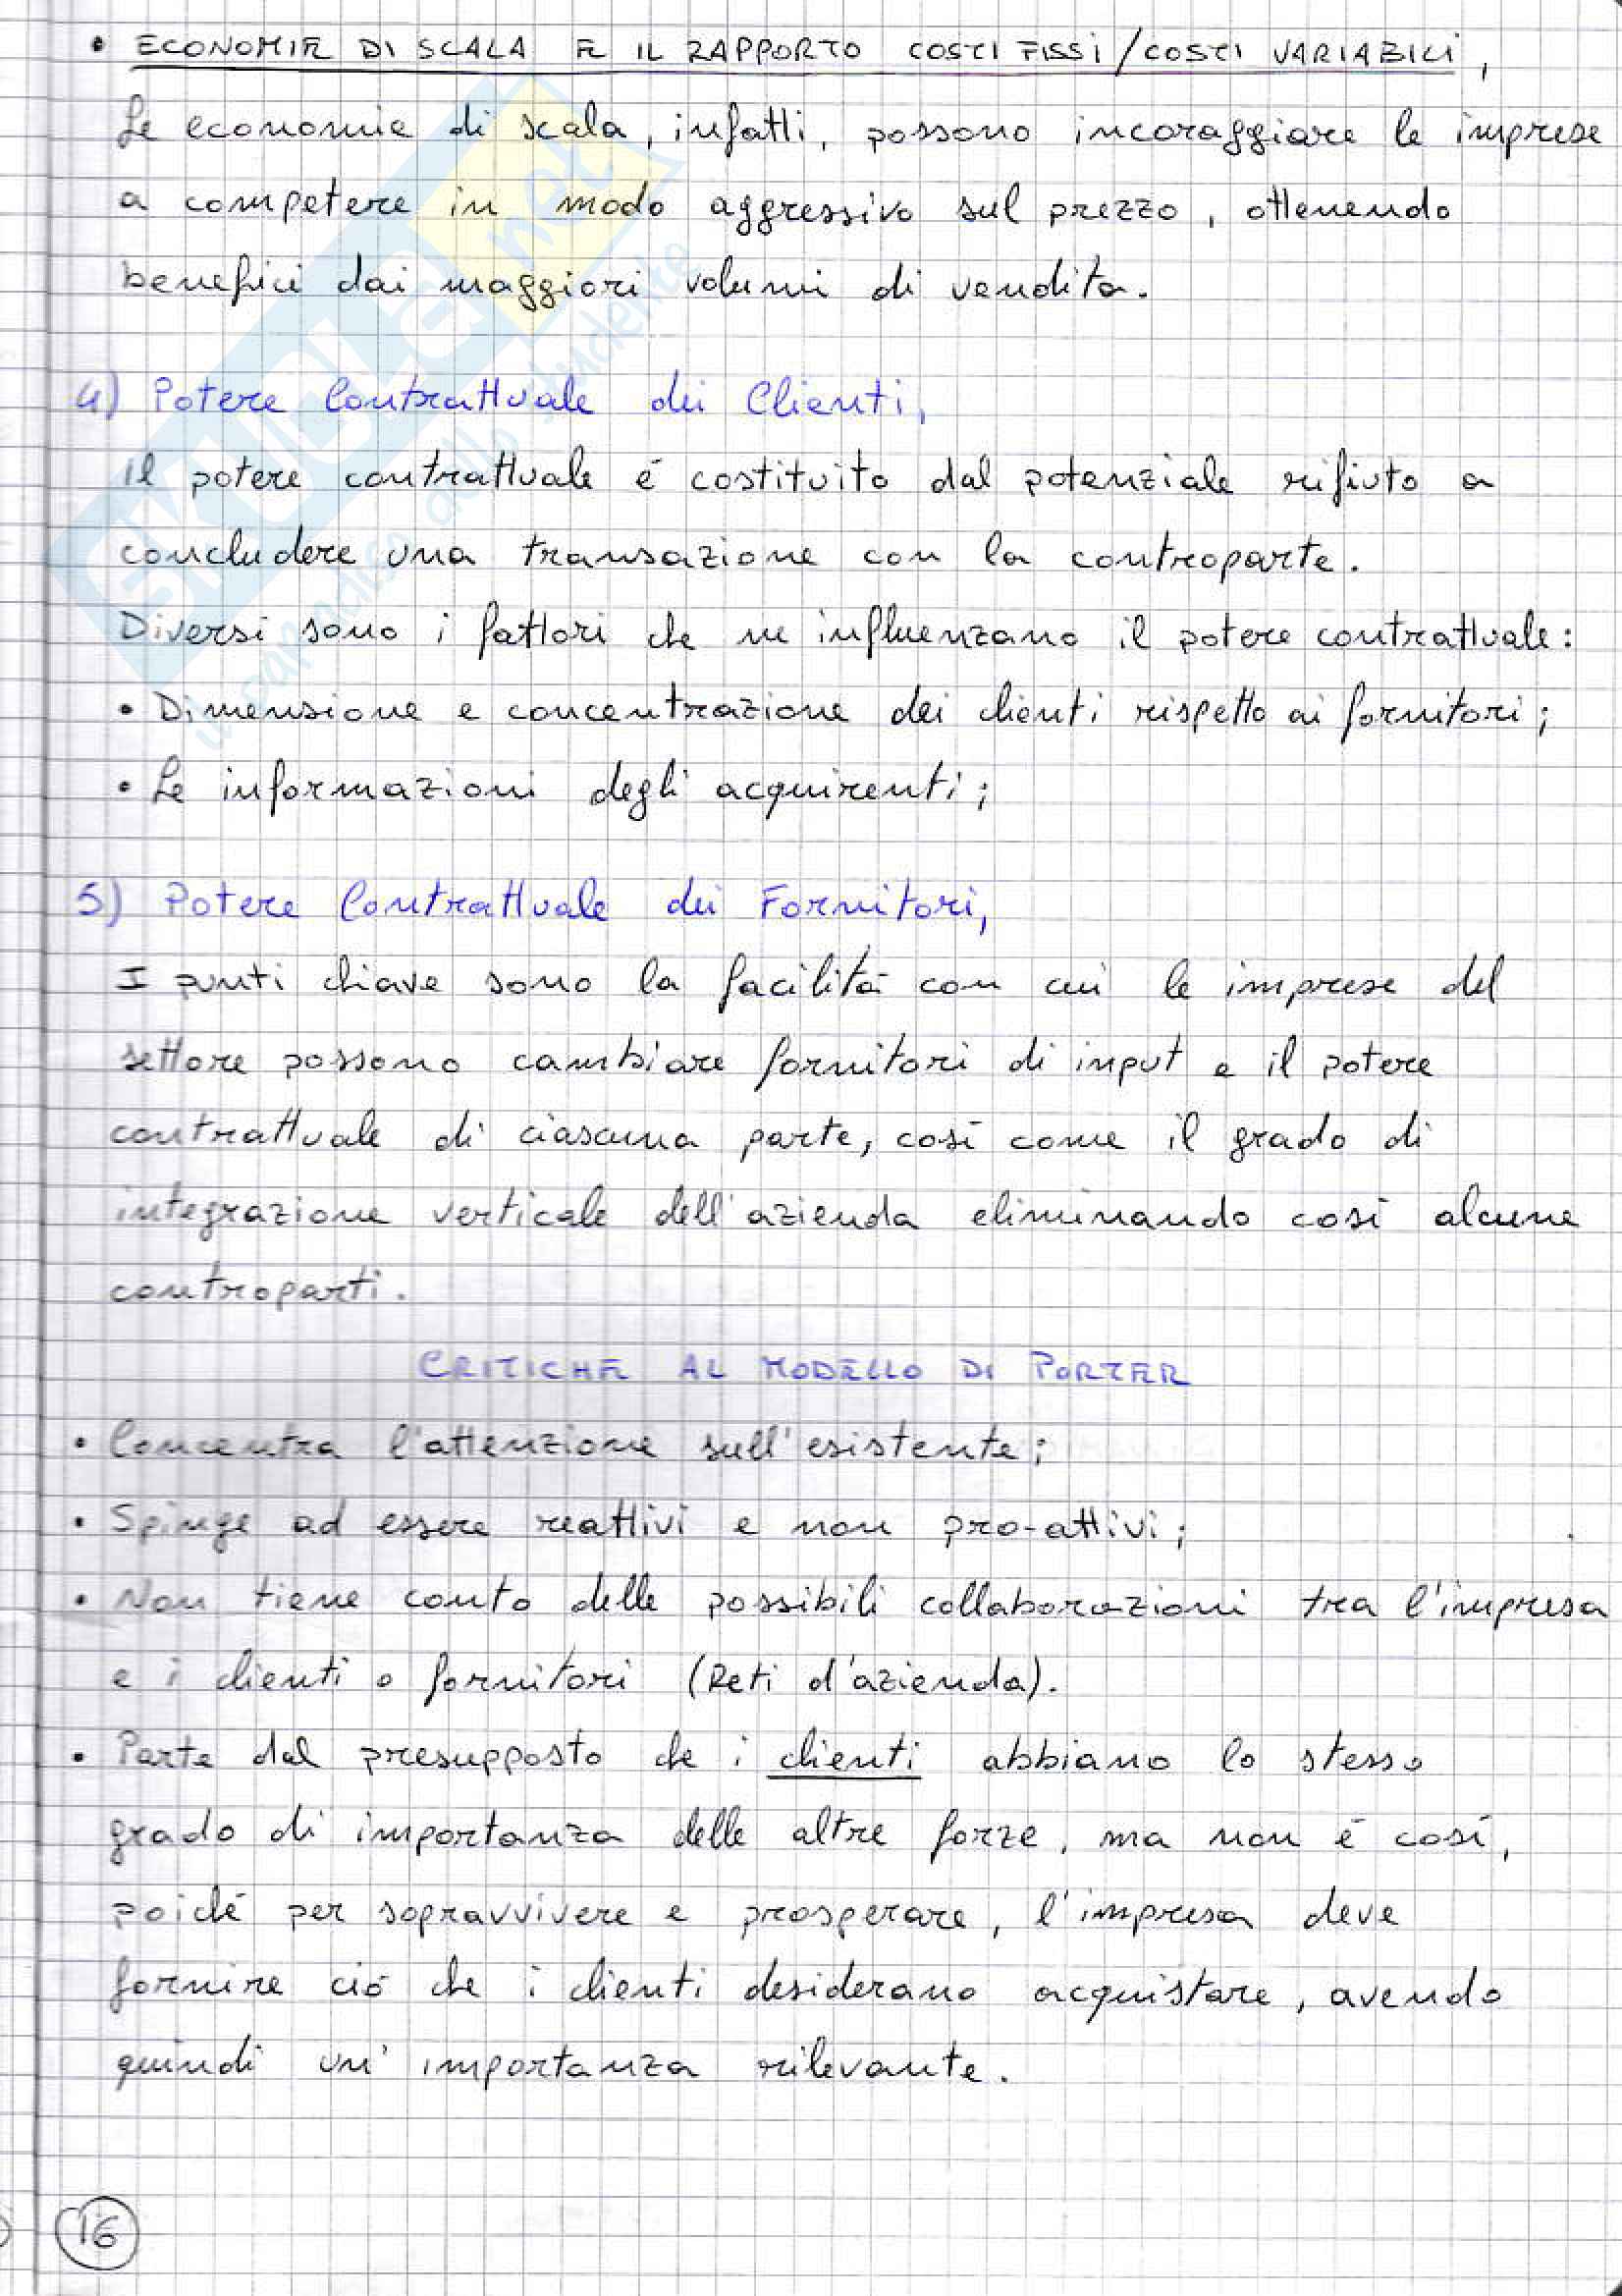 • ECONOMIE DI SCALA E IL RAPPORTO COSTI FISSI/COSTI VARIABILI,
Le economie di scala, infatti, possono incoraggiare le imprese
a competere in modo aggressivo sul prezzo, ottenendo
benefici dai maggiori volumi di vendita.
4) Potere Contrattuale dei Clienti,
Il potere contrattuale é costituito dal potenziale rifiuto a
concludere una transazione con la controparte.
Diversi sono i fattori che ne influenzano il potere contrattuale:
• Dimensione e concentrazione dei clienti rispetto ai fornitori;
• Le informazioni degli acquirenti;
5) Potere Contrattuale dei Fornitori,
I punti chiave sono la facilitá con cui le imprese del
settore possono cambiare fornitori di input e il potere
contrattuale di ciascuna parte, cosí come il grado di
integrazione verticale dell'azienda eliminando cosí alcune
controparti.
CRITICHE AL MODELLO DI PORTER
• Concentra l'attenzione sull'esistente;
• Spinge ad essere reattivi e non pro-attivi;
• Non tiene conto delle possibili collaborazioni tra l'impresa
e i clienti o fornitori (Reti d'azienda).
• Parte dal presupposto che i clienti abbiano lo stesso
grado di importanza delle altre forze, ma non é cosí,
poiché per sopravvivere e prosperare, l'impresa deve
fornire ció che i clienti desiderano acquistare, avendo
quindi un'importanza rilevante.
16
SKUOLA.net